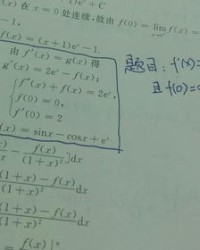 x)e^x + C
(x) 在 x = 0 处连续,故由 f(0) = lim f(x) =
-1,
f(x) = (x+1)e^x - 1.
由 f'(x) = g(x) 得
g'(x) = 2e^x - f(x);
f''(x) + f(x) = 2e^x,
f(0) = 0,
f'(0) = 2
(x) = sinx - cosx + e^x
题目: f'(x) =
且 f(0) =
x) / 1+x - f(x) / (1+x)^2 ]dx
(1+x) - f(x) / (1+x)^2 dx
(1+x) - f(x) / (1+x)^2 dx
= f(x) / |^π